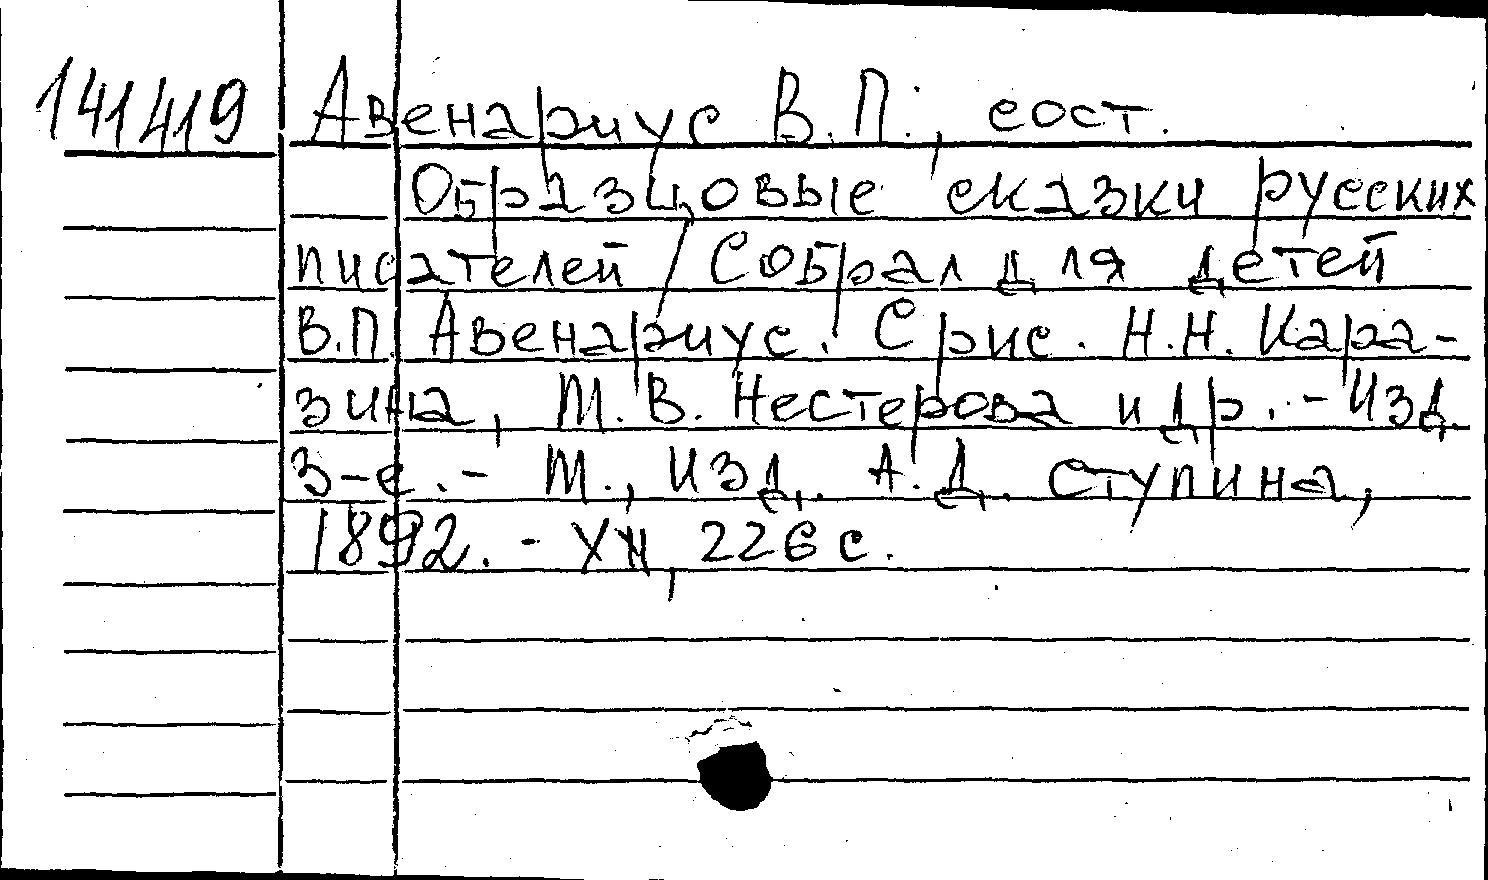 141419
Авенариус В.П., сост.
Образцовые сказки русских
писателей / Собрал для детей
В.П. Авенариус. С рис. Н.Н. Кара-
зина, М.В. Нестерова и др. - Изд.
3-е. - М., изд. А.Д. Ступина,
1892. - 226 с.